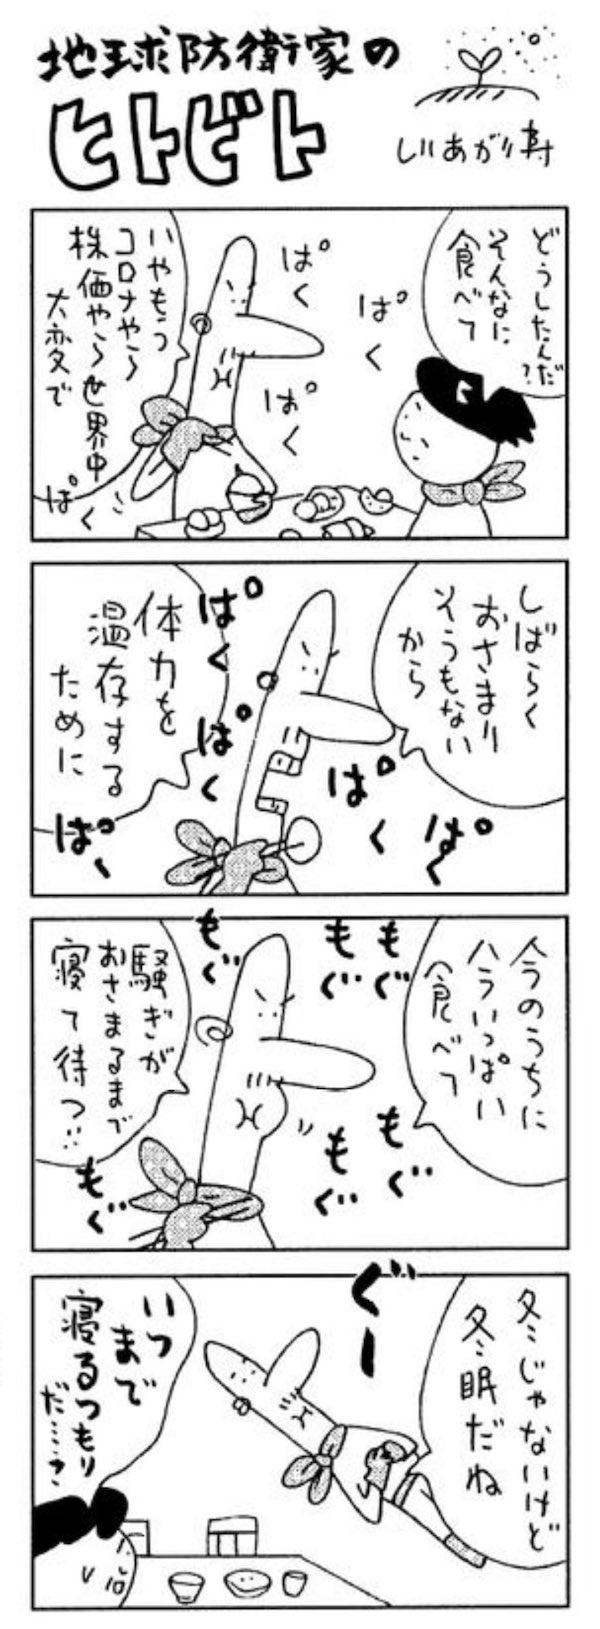 地球防衛家の
ヒトビト
しりあがり寿
どうしたんだ?
そんなに
食べて
ぱく
ぱく
ぱく
いやもう
コロナやら
株価やら世界中
大変で…
ぱく
しばらく
おさまり
そうもない
から
ぱく
ぱく
ぱく
ぱく
体力を
温存する
ために
ぱく
今のうちに
ハラいっぱい
食べて
もぐ
もぐ
もぐ
もぐ
もぐ
騒ぎが
おさまるまで
寝て待つ!!
もぐ
冬じゃないけど
冬眠だね
ぐー
いつ
まで
寝るつもり
だ……?